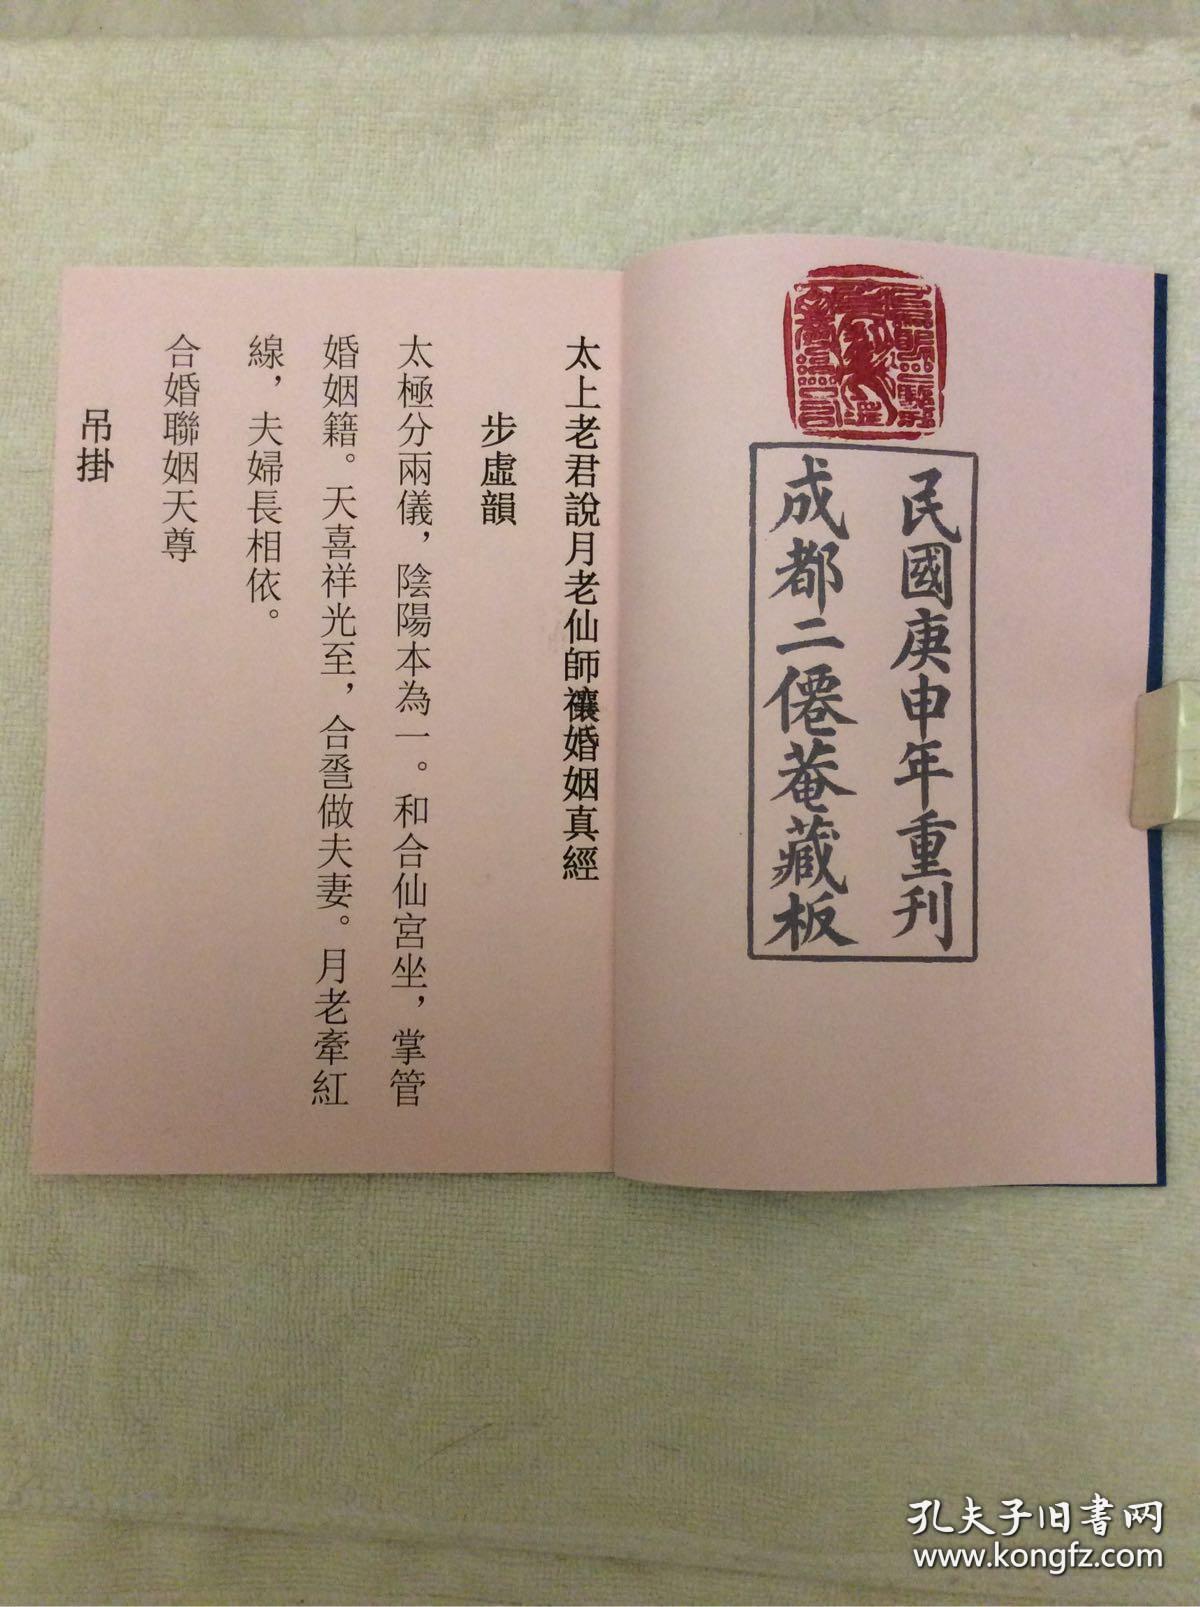 民國庚申年重刊
成都二僊菴藏板
太上老君說月老仙師禳婚姻真經
步虛韻
太極分兩儀，陰陽本為一。和合仙宮坐，掌管
婚姻籍。天喜祥光至，合巹做夫妻。月老牽紅
線，夫婦長相依。
合婚聯姻天尊
吊掛
孔夫子旧书网
www.kongfz.com